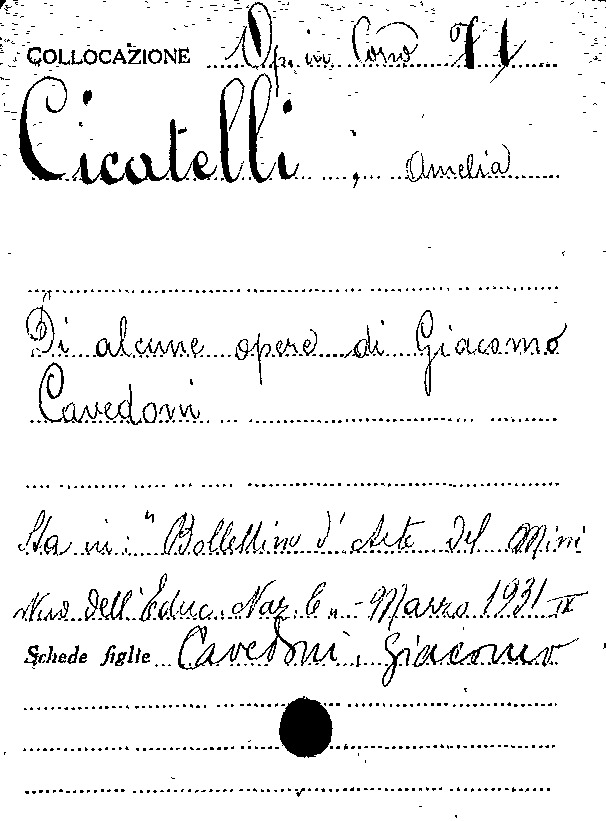 COLLOCAZIONE Op. in Corso
Cicatelli, Amelia
Di alcune opere di Giacomo
Cavedoni
Sta in: "Bollettino d'Arte del Mini
stero dell'Educ. Naz.le" - Marzo 1931 IX
Schede figlie Cavedoni, Giacomo